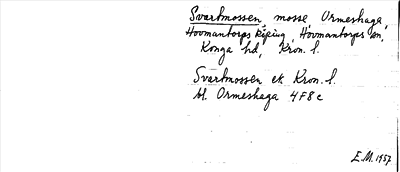 Svartmossen, mosse, Ormeshaga,
Hovmantorps köping, Hovmantorps sn,
Konga hd, Kron. l.
Svartmossen ek Kron. l.
bl. Ormeshaga 4F8c
E.M. 1957